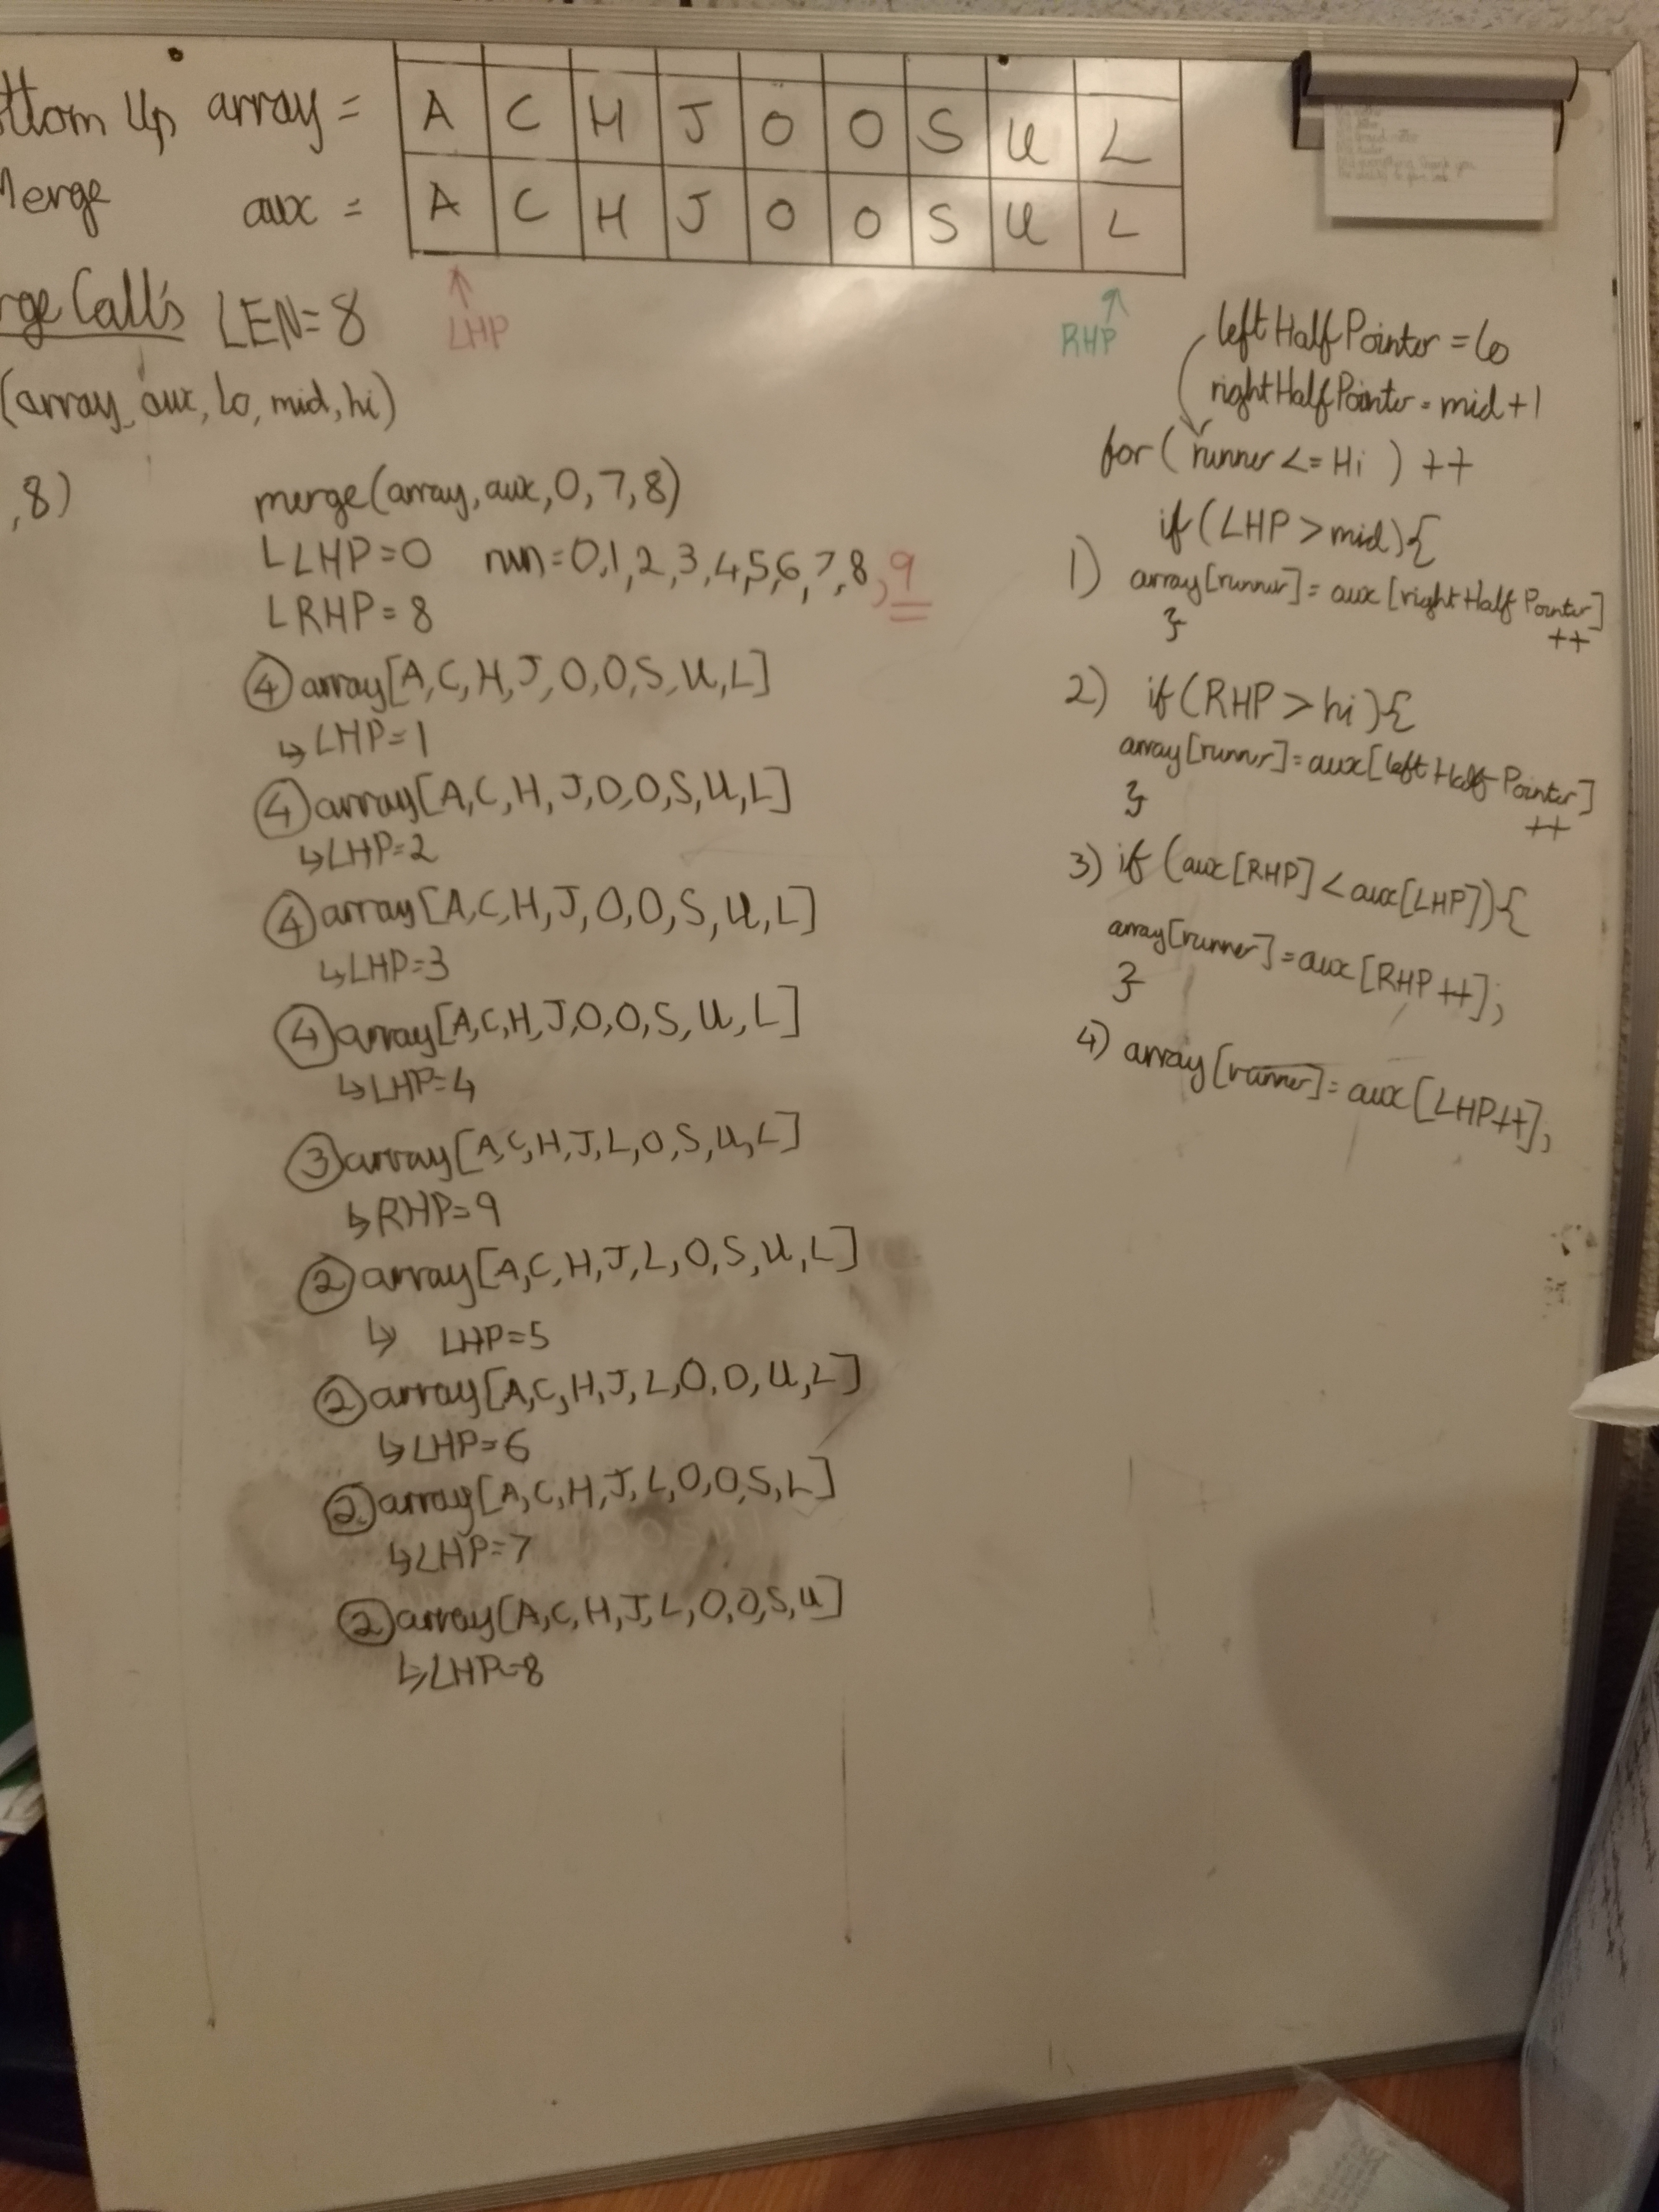 ttom Up array = A C H J O O S U L
Merge aux = A C H J O O S U L
LHP RHP
rge Call's LEN=8
(array, aux, lo, mid, hi)
,8)
merge(array, aux, 0, 7, 8)
LLHP=0 run=0,1,2,3,4,5,6,7,8,9
LRHP=8
④ array[A,C,H,J,O,O,S,U,L]
↳LHP=1
④ array[A,C,H,J,O,O,S,U,L]
↳LHP=2
④ array[A,C,H,J,O,O,S,U,L]
↳LHP=3
④ array[A,C,H,J,O,O,S,U,L]
↳LHP=4
③ array[A,C,H,J,L,O,S,U,L]
↳RHP=9
② array[A,C,H,J,L,O,S,U,L]
↳ LHP=5
② array[A,C,H,J,L,O,O,U,L]
↳LHP=6
② array[A,C,H,J,L,O,O,S,L]
↳LHP=7
② array[A,C,H,J,L,O,O,S,U]
↳LHP=8
leftHalfPointer = lo
rightHalfPointer = mid+1
for ( runner <= Hi ) ++
if (LHP > mid){
1) array[runner] = aux [rightHalfPointer]
++
}
2) if (RHP > hi){
array[runner] = aux[leftHalfPointer]
++
}
3) if (aux[RHP] < aux[LHP]){
array[runner] = aux[RHP++];
}
4) array [runner] = aux [LHP++];